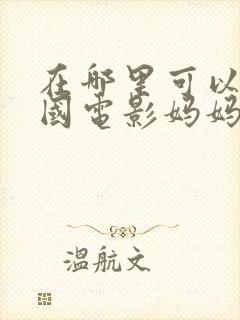 在哪里可以
國電影妈妈
温航文